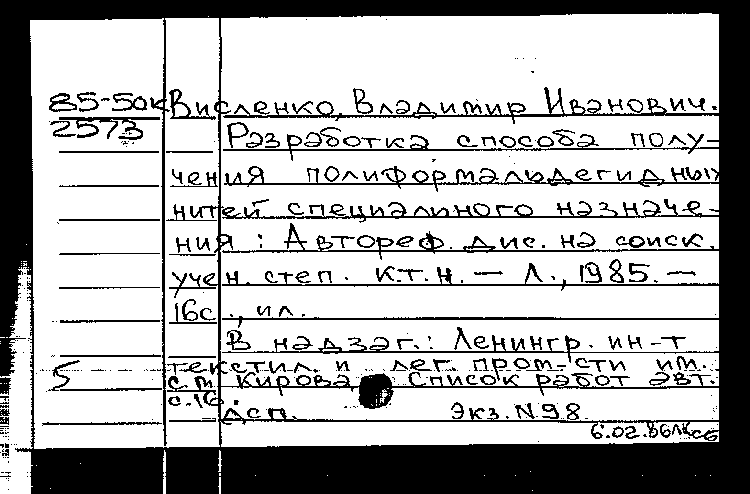 85-5ок Висленко, Владимир Иванович.
2573 Разработка способа полу-
чения полиформальдегидных
нитей специального назначе-
ния : Автореф. дис. на соиск.
учен. степ. к.т.н. — Л., 1985. —
16с., ил.
В надзаг.: Ленингр. ин-т
5 текстил. и лег. пром-сти им.
С.М. Кирова. Список работ авт.
с.16.
ДСП. Экз. N98
6.02.86